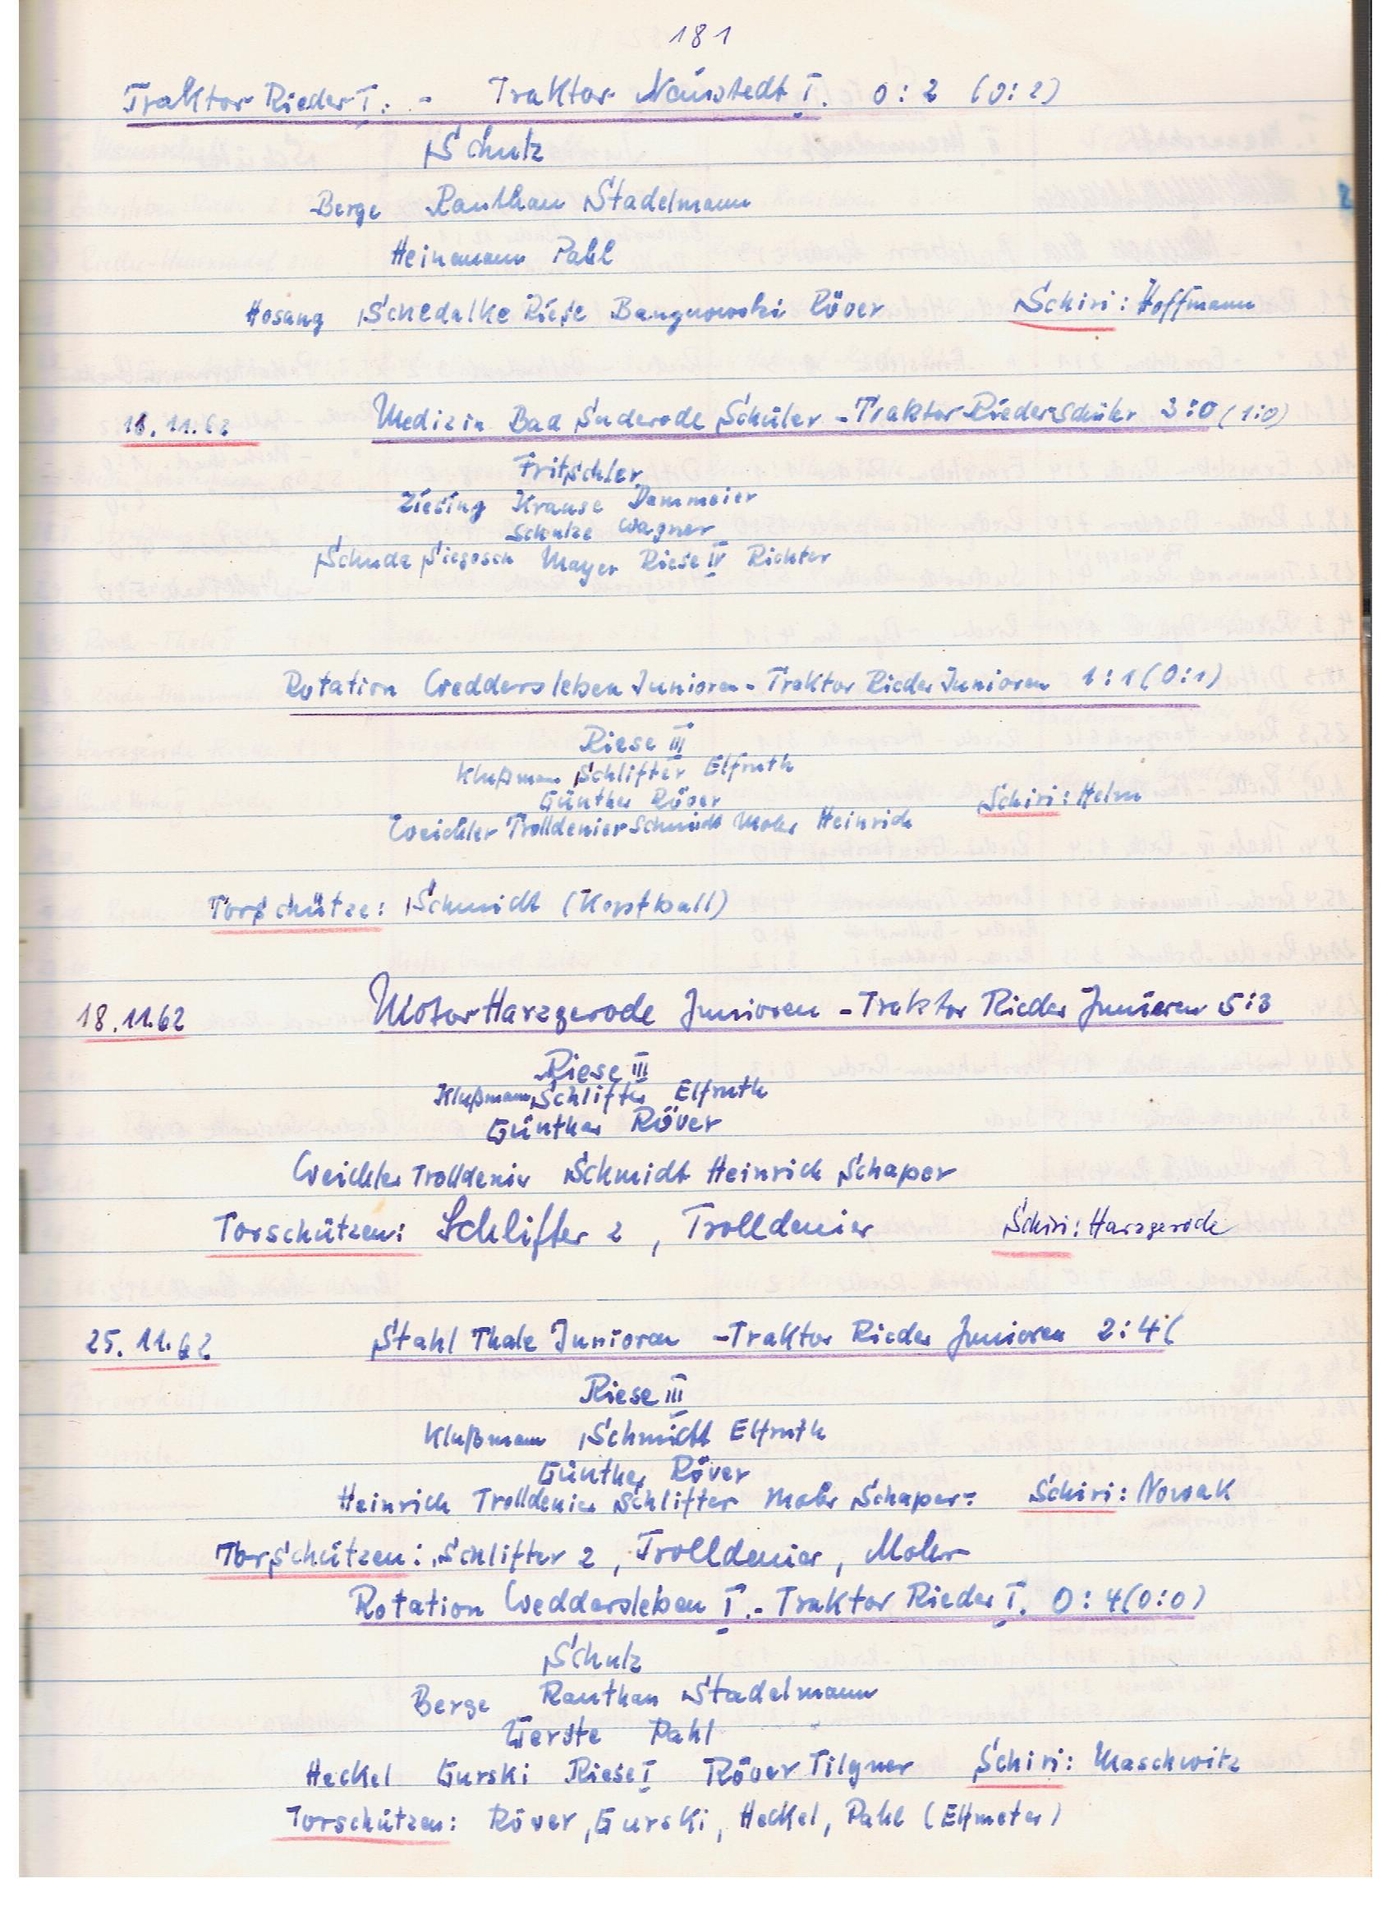 181
Traktor Rieder I. - Traktor Neinstedt I. 0:2 (0:2)
Schulz
Berge Ranthan Stadelmann
Heinemann Pahl
Hosang Schedalke Riese Bangnowski Röver Schiri: Hoffmann
11.62 Medizin Bad Suderode Schüler - Traktor Rieder Schüler 3:0 (1:0)
Fritschler
Ziesing Krause Dammeier
Schulze Wagner
Schuda Siegosch Mayer Riese IV Richter
Rotation Weddersleben Junioren - Traktor Rieder Junioren 1:1 (0:1)
Riese III
Klußmann Schlifter Elfruth
Günther Röver
Weichler Trolldenier Schmidt Mohr Heinrich Schiri: Helm
Torschütze: Schmidt (Kopfball)
18.11.62 Motor Harzgerode Junioren - Traktor Rieder Junioren 5:3
Riese III
Klußmann Schlifter Elfruth
Günther Röver
Weichler Trolldenier Schmidt Heinrich Schaper
Torschützen: Schlifter 2, Trolldenier Schiri: Harzgerode
25.11.62 Stahl Thale Junioren - Traktor Rieder Junioren 2:4 (
Riese III
Klußmann Schmidt Elfruth
Günther Röver
Heinrich Trolldenier Schlifter Mohr Schaper Schiri: Nowak
Torschützen: Schlifter 2, Trolldenier, Mohr
Rotation Weddersleben I. - Traktor Rieder I. 0:4 (0:0)
Schulz
Berge Ranthan Stadelmann
Gerste Pahl
Heckel Gurski Riese I Röver Tilgner Schiri: Maschwitz
Torschützen: Röver, Gurski, Heckel, Pahl (Elfmeter)